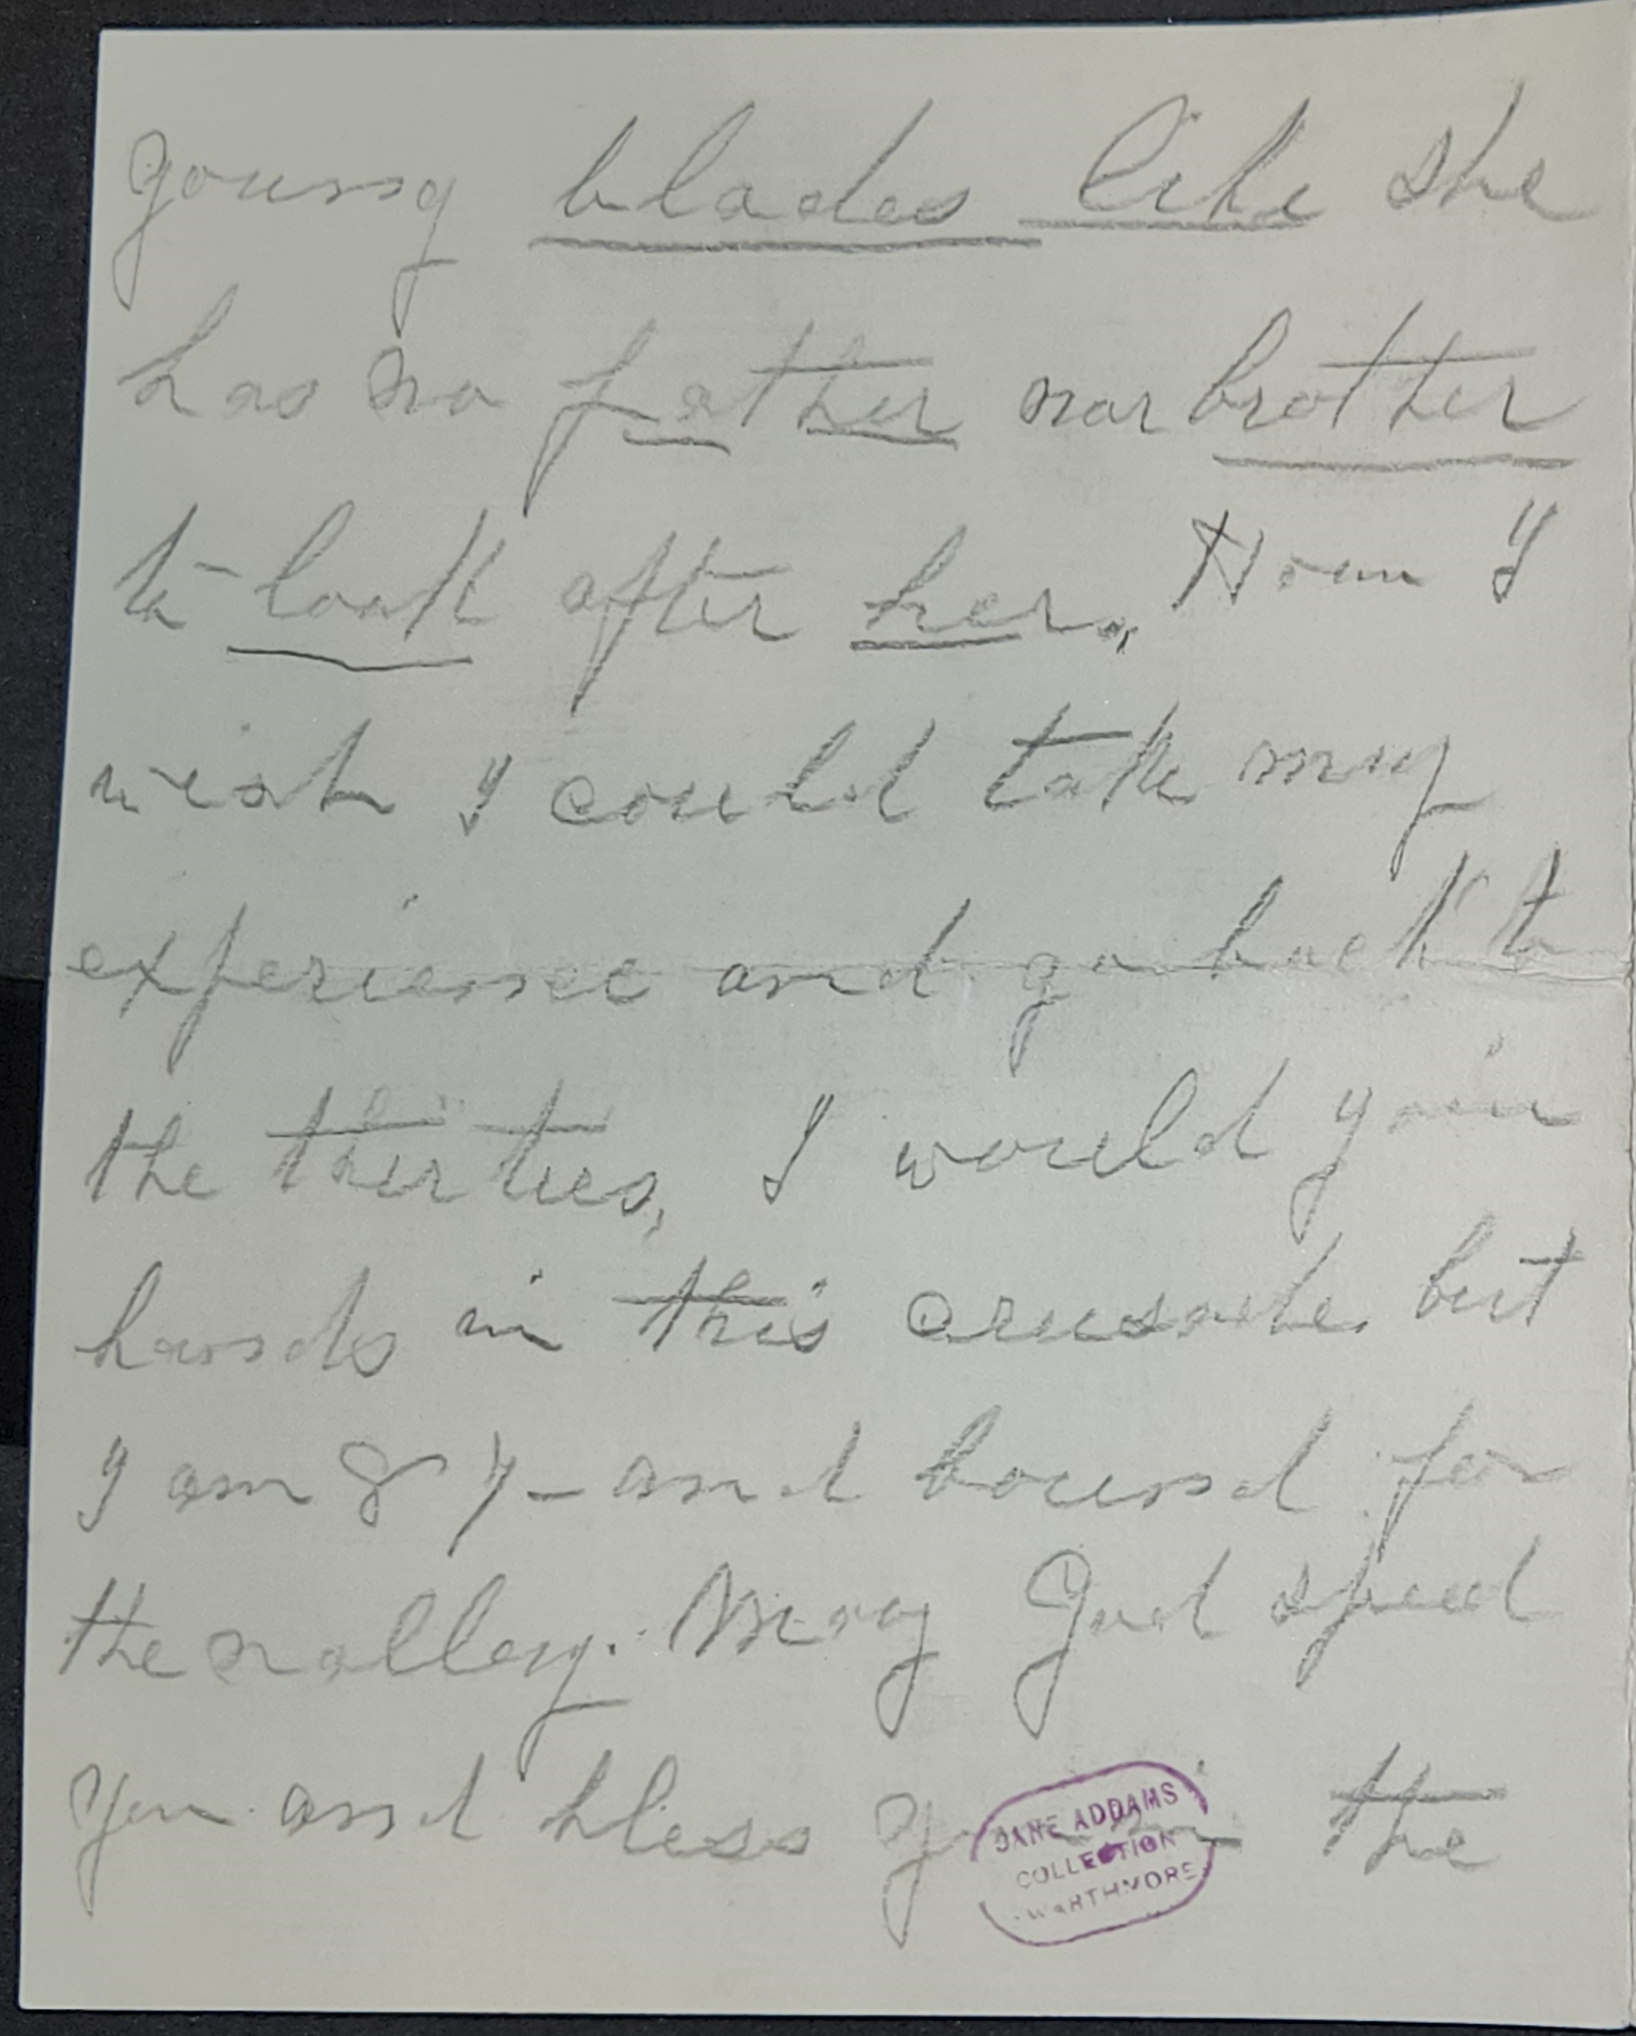 young blades like she
has no father nor brother
to look after her., How I
wish I could take my
experience and go back to
the thirties, I would join
hands in this crusade. but
I am 87 - and bound for
the valley. May God speed
you and bless you in the
JANE ADDAMS
COLLECTION
SWARTHMORE